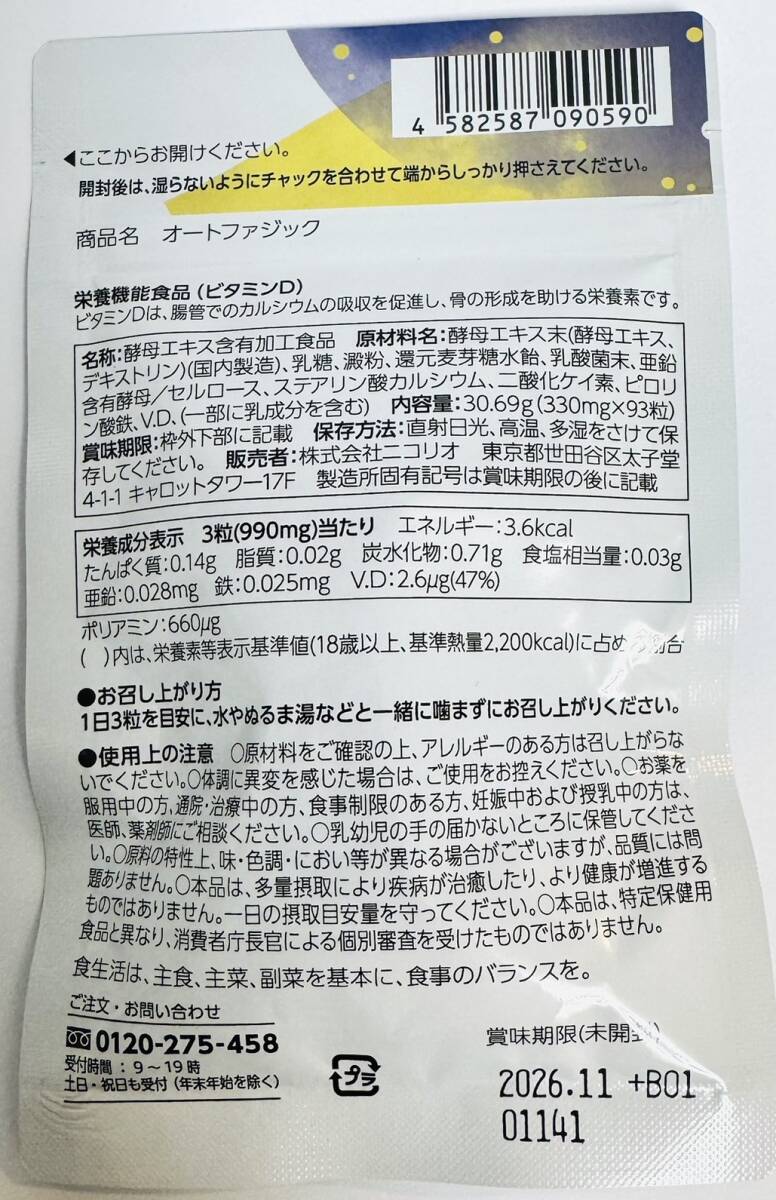 4 582587 090590
◀ここからお開けください。
開封後は、湿らないようにチャックを合わせて端からしっかり押さえてください。
商品名 オートファジック
栄養機能食品(ビタミンD)
ビタミンDは、腸管でのカルシウムの吸収を促進し、骨の形成を助ける栄養素です。
名称:酵母エキス含有加工食品 原材料名:酵母エキス末(酵母エキス、
デキストリン)(国内製造)、乳糖、澱粉、還元麦芽糖水飴、乳酸菌末、亜鉛
含有酵母/セルロース、ステアリン酸カルシウム、二酸化ケイ素、ピロリ
ン酸鉄、V.D、(一部に乳成分を含む) 内容量:30.69g(330mg×93粒)
賞味期限:枠外下部に記載 保存方法:直射日光、高温、多湿をさけて保
存してください。 販売者:株式会社ニコリオ 東京都世田谷区太子堂
4-1-1 キャロットタワー17F 製造所固有記号は賞味期限の後に記載
栄養成分表示 3粒(990mg)当たり エネルギー:3.6kcal
たんぱく質:0.14g 脂質:0.02g 炭水化物:0.71g 食塩相当量:0.03g
亜鉛:0.028mg 鉄:0.025mg V.D:2.6μg(47%)
ポリアミン:660μg
( )内は、栄養素等表示基準値(18歳以上、基準熱量2,200kcal)に占める割合
●お召し上がり方
1日3粒を目安に、水やぬるま湯などと一緒に噛まずにお召し上がりください。
●使用上の注意 〇原材料をご確認の上、アレルギーのある方は召し上がらな
いでください。〇体調に異変を感じた場合は、ご使用をお控えください。〇お薬を
服用中の方、通院・治療中の方、食事制限のある方、妊娠中および授乳中の方は、
医師、薬剤師にご相談ください。〇乳幼児の手の届かないところに保管してくださ
い。〇原料の特性上、味・色調・におい等が異なる場合がございますが、品質には問
題ありません。〇本品は、多量摂取により疾病が治癒したり、より健康が増進する
ものではありません。一日の摂取目安量を守ってください。〇本品は、特定保健用
食品と異なり、消費者庁長官による個別審査を受けたものではありません。
食生活は、主食、主菜、副菜を基本に、食事のバランスを。
ご注文・お問い合わせ
0120-275-458
受付時間:9～19時
土日・祝日も受付(年末年始を除く)
プラ
賞味期限(未開封)
2026.11 +B01
01141